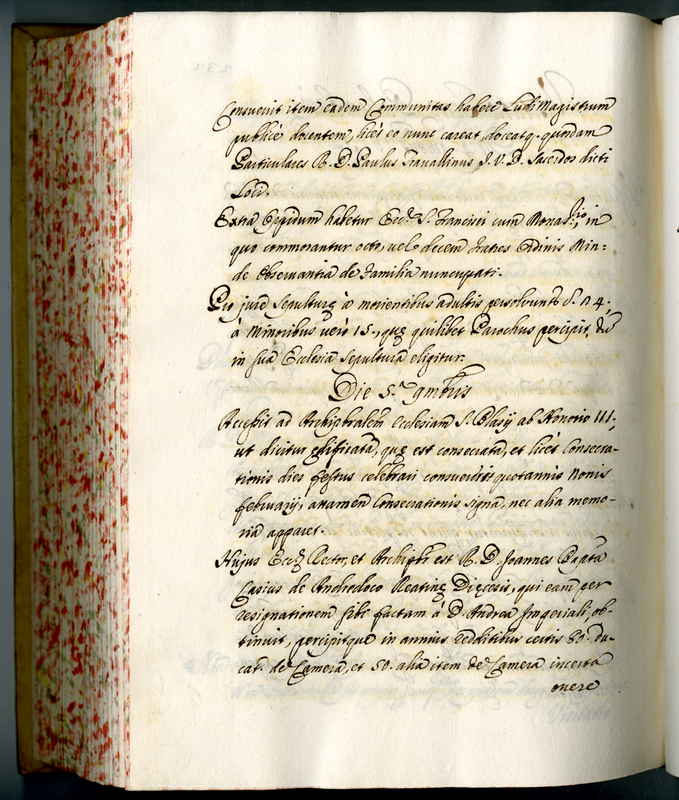 Consuevit item eadem Communitas habere Ludi Magistrum
publicè docentem, licèt eo nunc careat, doceatq. quosdam
Particulares R. D. Paulus Travallinus I. V. D. Sacerdos dicti
Loci.
Extra Oppidum habetur Eccl. S. Francisci cum Monas.rio, in
quo commorantur octo, vel decem Fratres Ordinis Min=
de Observantia de Familia nuncupati.
Pro jure sepulturę à morientibus adultis persolvunt
à Minoribus verò 15., quę quilibet Parochus percipit, dũ
in suâ Ecclesiâ sepultura eligitur.
Die 5.ª 9mbris
Accessit ad Archipbralem Ecclesiam S. Blasij ab Honorio III.,
ut dicitur ędificatã, quę est consecrata, et licèt Consecra-
tionis dies festus celebrari consueverit quotannis Nonis
Februarij, attamen Consecrationis signa, nec alia memo-
ria apparet.
Hujus Eccl.ę Rector, et Archipbr est R. D. Joannes Bapta
Casius de Androdoco Reatinę Dięcesis, qui eam per
resignationem sibi factam à D. Andrea Imperiali, ob-
tinuit, percipitque in annuis redditibus certis 80. du-
cat. de Camera, et 50. alia item de Camera incerta
onere